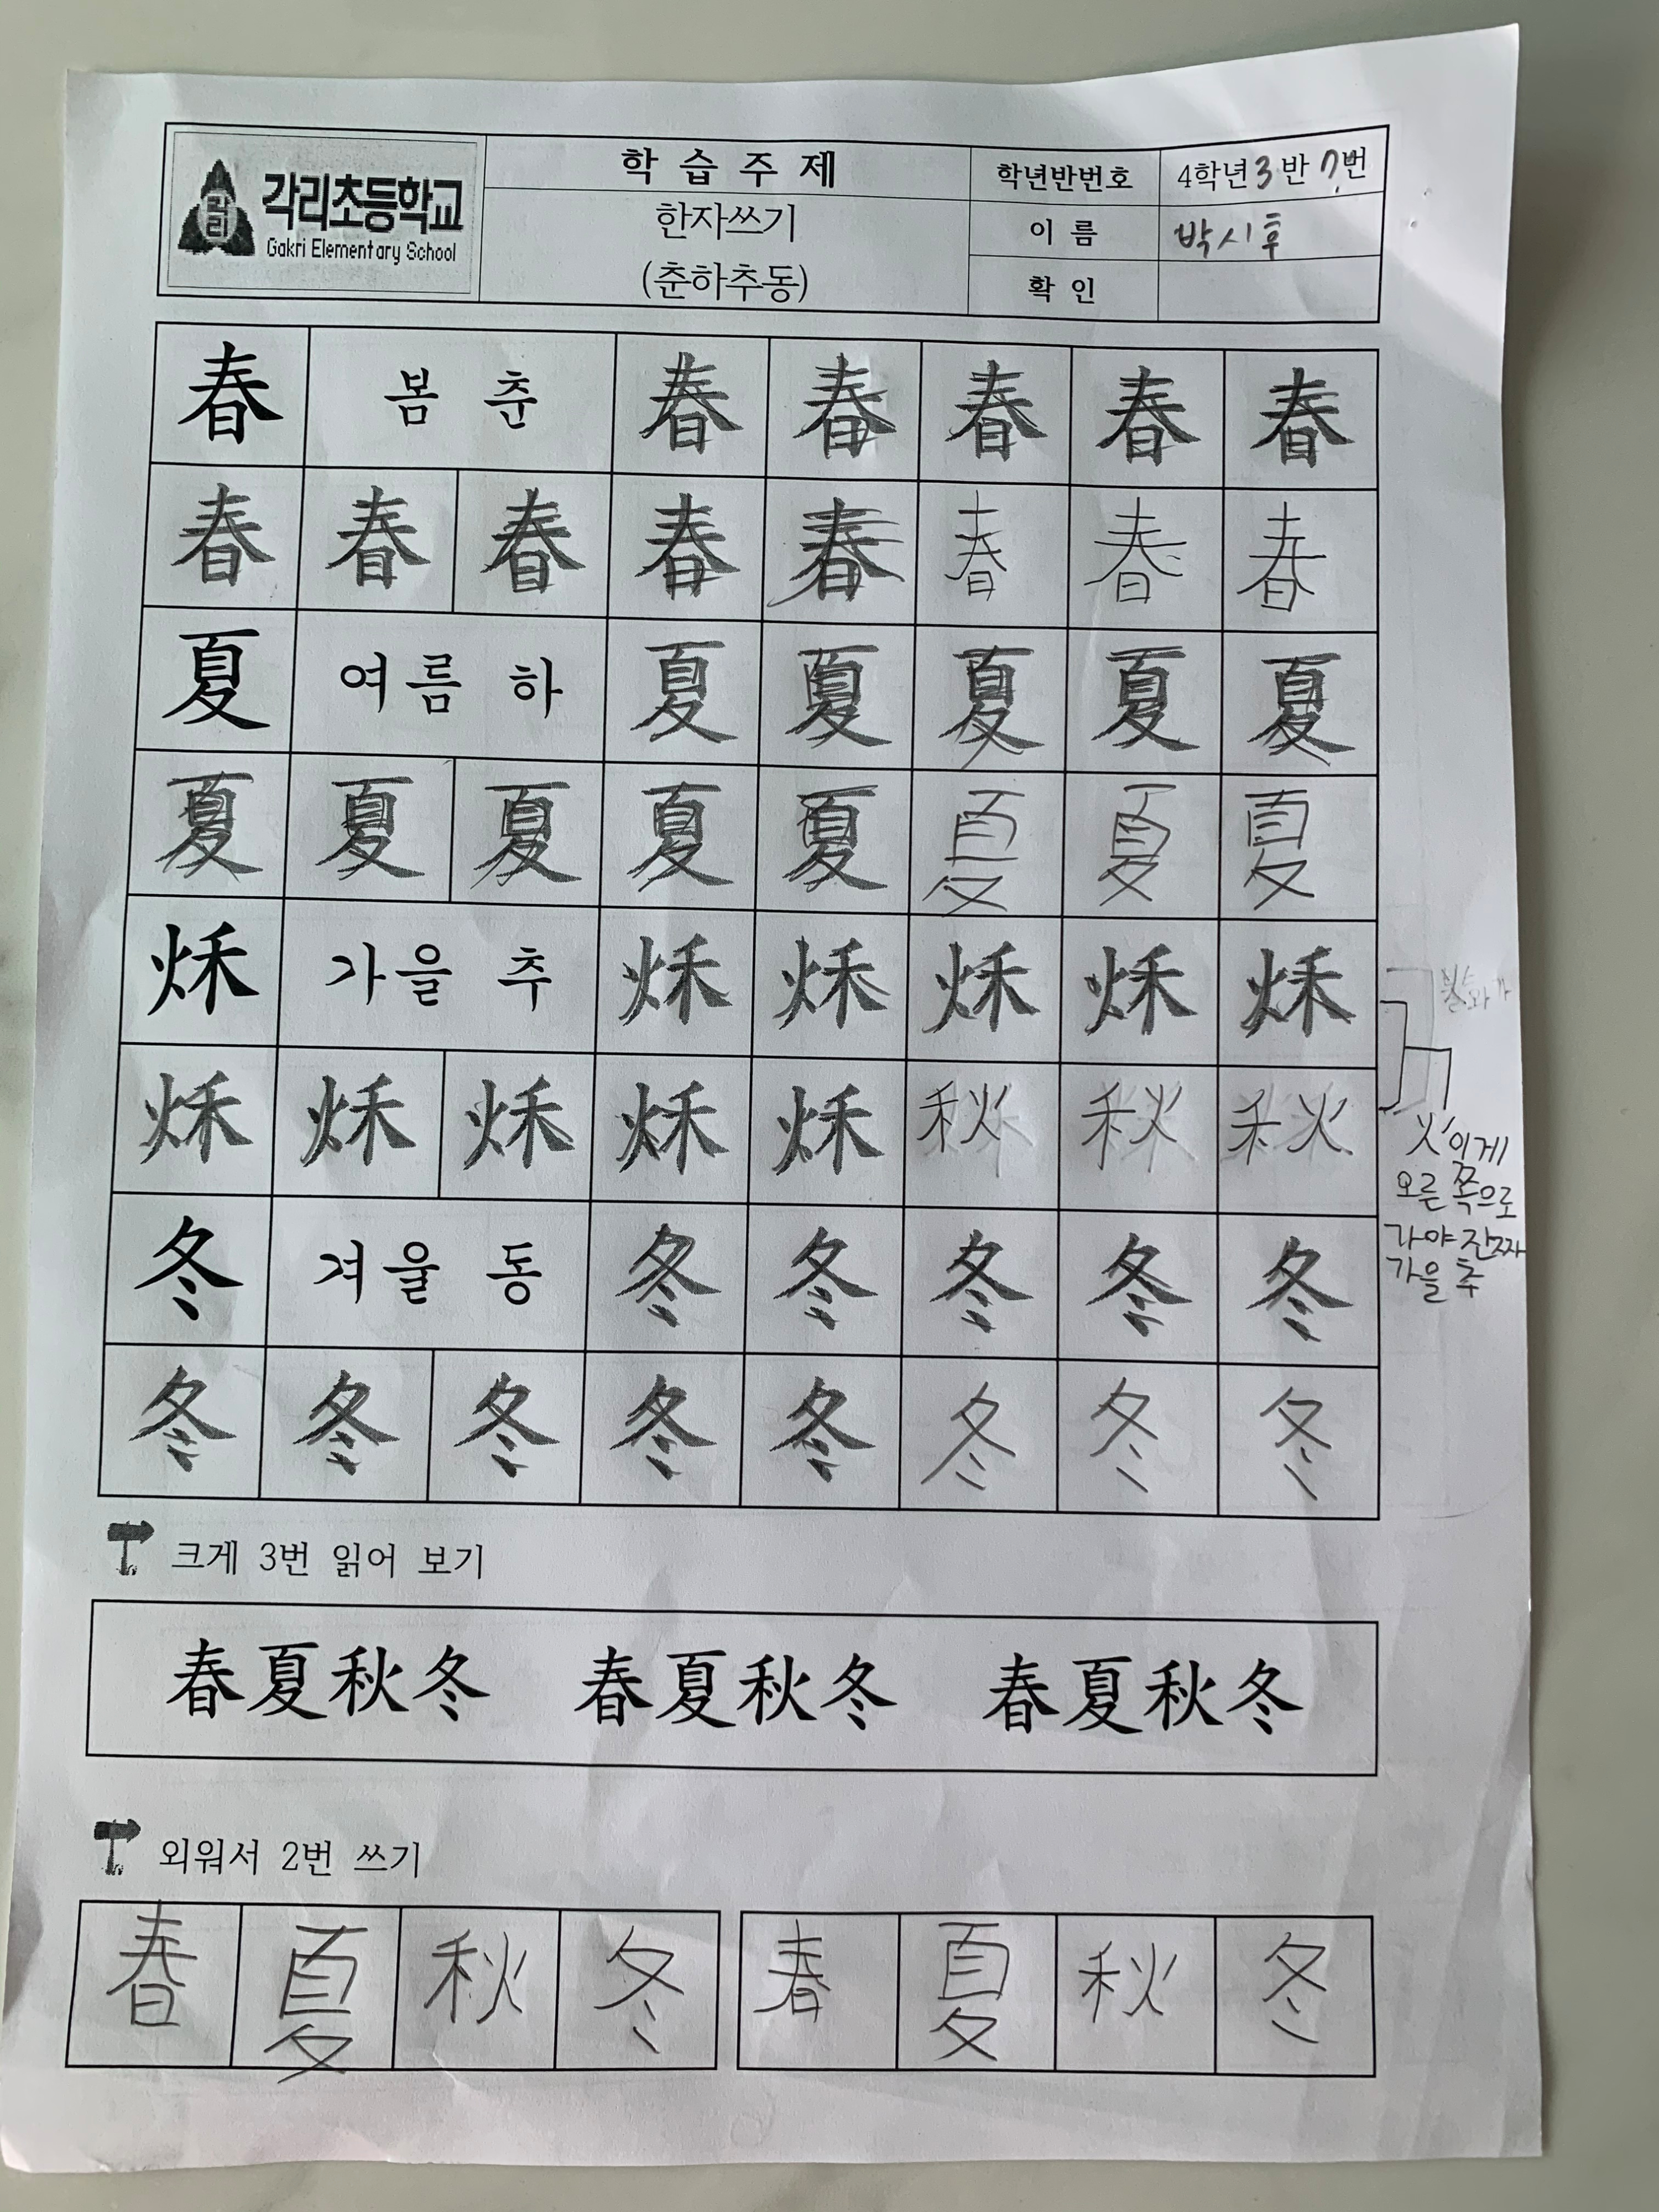 각리초등학교
Gakri Elementary School
각리
학습주제
한자쓰기
(춘하추동)
학년반번호 4학년 3반 7번
이름 박시후
확인
春 봄 춘 春 春 春 春 春
春 春 春 春 春 春 春 春
夏 여름 하 夏 夏 夏 夏 夏
夏 夏 夏 夏 夏 夏 夏 夏
秌 가을 추 秌 秌 秌 秌 秌
秌 秌 秌 秌 秌 秋 秋 秋
冬 겨울 동 冬 冬 冬 冬 冬
冬 冬 冬 冬 冬 冬 冬 冬
火 이게
오른 쪽으로
가야 진짜
가을 추
크게 3번 읽어 보기
春夏秋冬 春夏秋冬 春夏秋冬
외워서 2번 쓰기
春 夏 秋 冬 春 夏 秋 冬